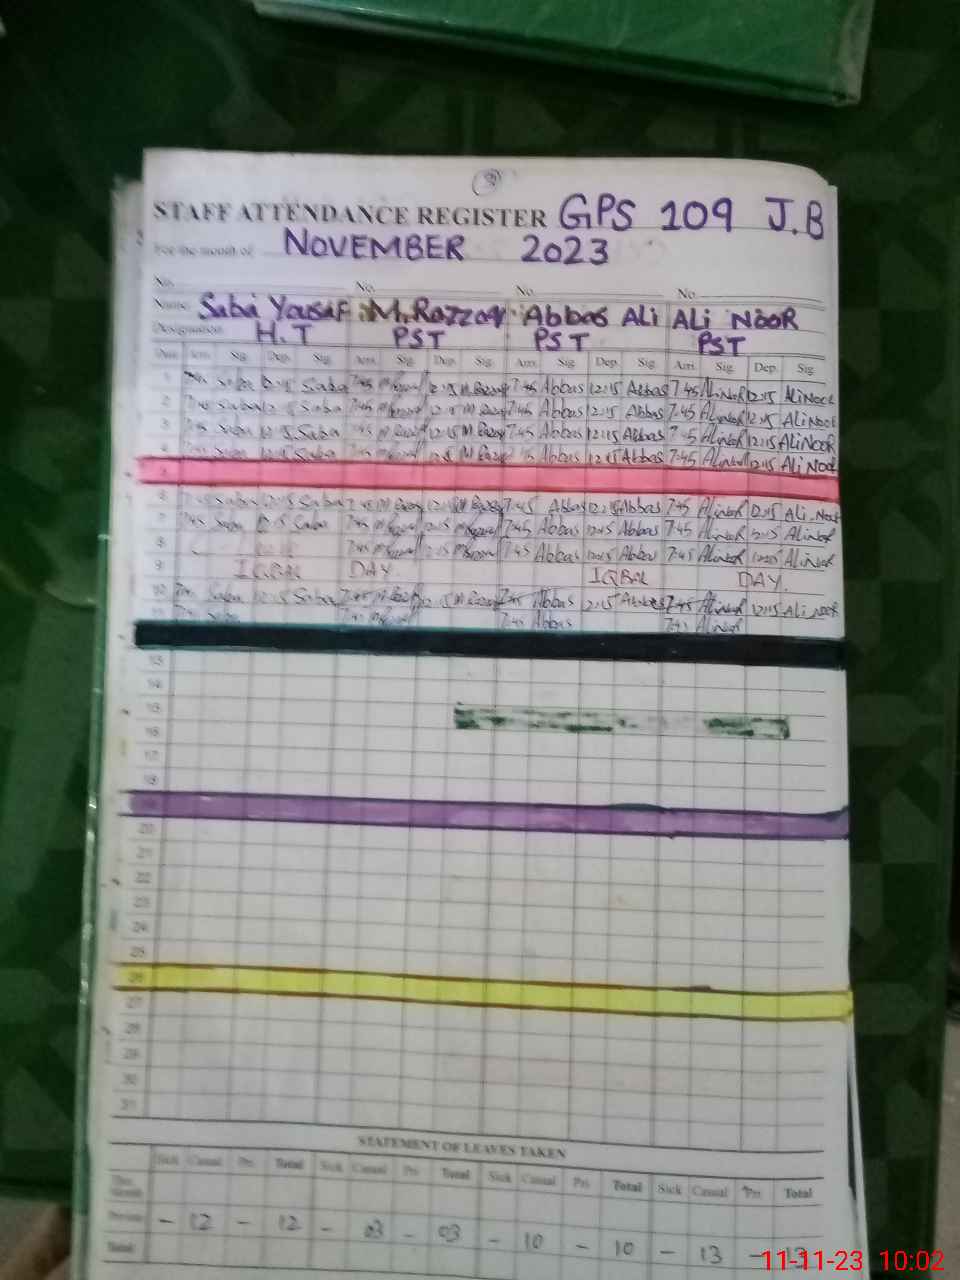 STAFF ATTENDANCE REGISTER GPS 109 J.B
For the month of NOVEMBER 2023
No. No. No. No.
Name Saba Yousaf M.Razzaq Abbas Ali Ali NooR
Designation H.T PST PST PST
Date Arri. Sig. Dep. Sig. Arri. Sig. Dep. Sig. Arri. Sig. Dep. Sig. Arri. Sig. Dep. Sig.
1 7:45 Saba 12:15 Saba 7:45 12:15 M Razzaq 7:45 Abbas 12:15 Abbas 7:45 AliNooR 12:15 AliNooR
2 7:45 Saba 12:15 Saba 7:45 12:15 M Razzaq 7:45 Abbas 12:15 Abbas 7:45 AliNooR 12:15 AliNooR
3 7:45 Saba 12:15 Saba 7:45 12:15 M Razzaq 7:45 Abbas 12:15 Abbas 7:45 AliNooR 12:15 AliNooR
4 7:45 Saba 12:15 Saba 7:45 12:15 M Razzaq 7:45 Abbas 12:15 Abbas 7:45 AliNooR 12:15 AliNooR
5
6 7:45 Saba 12:15 Saba 7:45 M Razzaq 12:15 M Razzaq 7:45 Abbas 12:15 Abbas 7:45 AliNooR 12:15 Ali NooR
7 7:45 Saba 12:15 Saba 7:45 12:15 7:45 Abbas 12:15 Abbas 7:45 AliNooR 12:15 AliNooR
8 7:45 12:15 7:45 Abbas 12:15 Abbas 7:45 AliNooR 12:15 AliNooR
9 IQBAL DAY IQBAL DAY.
10 7:45 Saba 12:15 Saba 7:45 12:15 M Razzaq 7:45 Abbas 12:15 Abbas 7:45 AliNooR 12:15 Ali NooR
7:45 Saba 7:45 7:45 Abbas 7:45 AliNooR
13
14
15
16
17
18
19
20
21
22
23
24
25
26
27
28
29
30
31
STATEMENT OF LEAVES TAKEN
Sick Casual Pri. Total Sick Casual Pri. Total Sick Casual Pri. Total Sick Casual Pri. Total
This Month
Previous - 12 - 12 - 03 - 03 - 10 - 10 - 13 - 13
Total
11-11-23 10:02